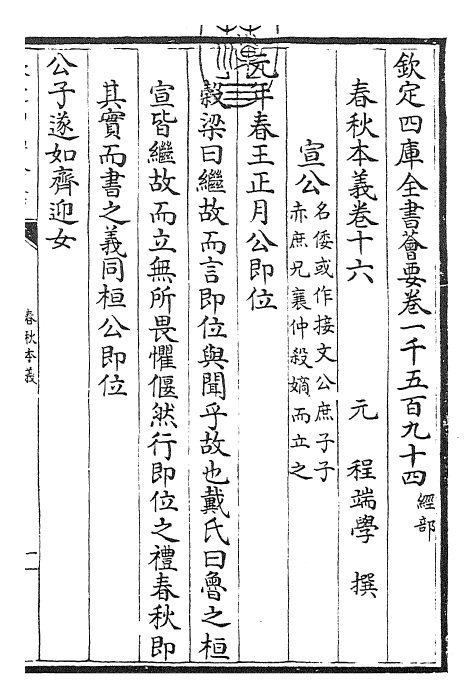 欽定四庫全書薈要卷一千五百九十四 經部
春秋本義卷十六 元 程端學 撰
宣公 名倭或作接文公庶子子
赤庶兄襄仲殺嫡而立之
元年春王正月公即位
穀梁曰繼故而言即位與聞乎故也戴氏曰魯之桓
宣皆繼故而立無所畏懼偃然行即位之禮春秋即
其實而書之義同桓公即位
公子遂如齊迎女
春秋本義
一